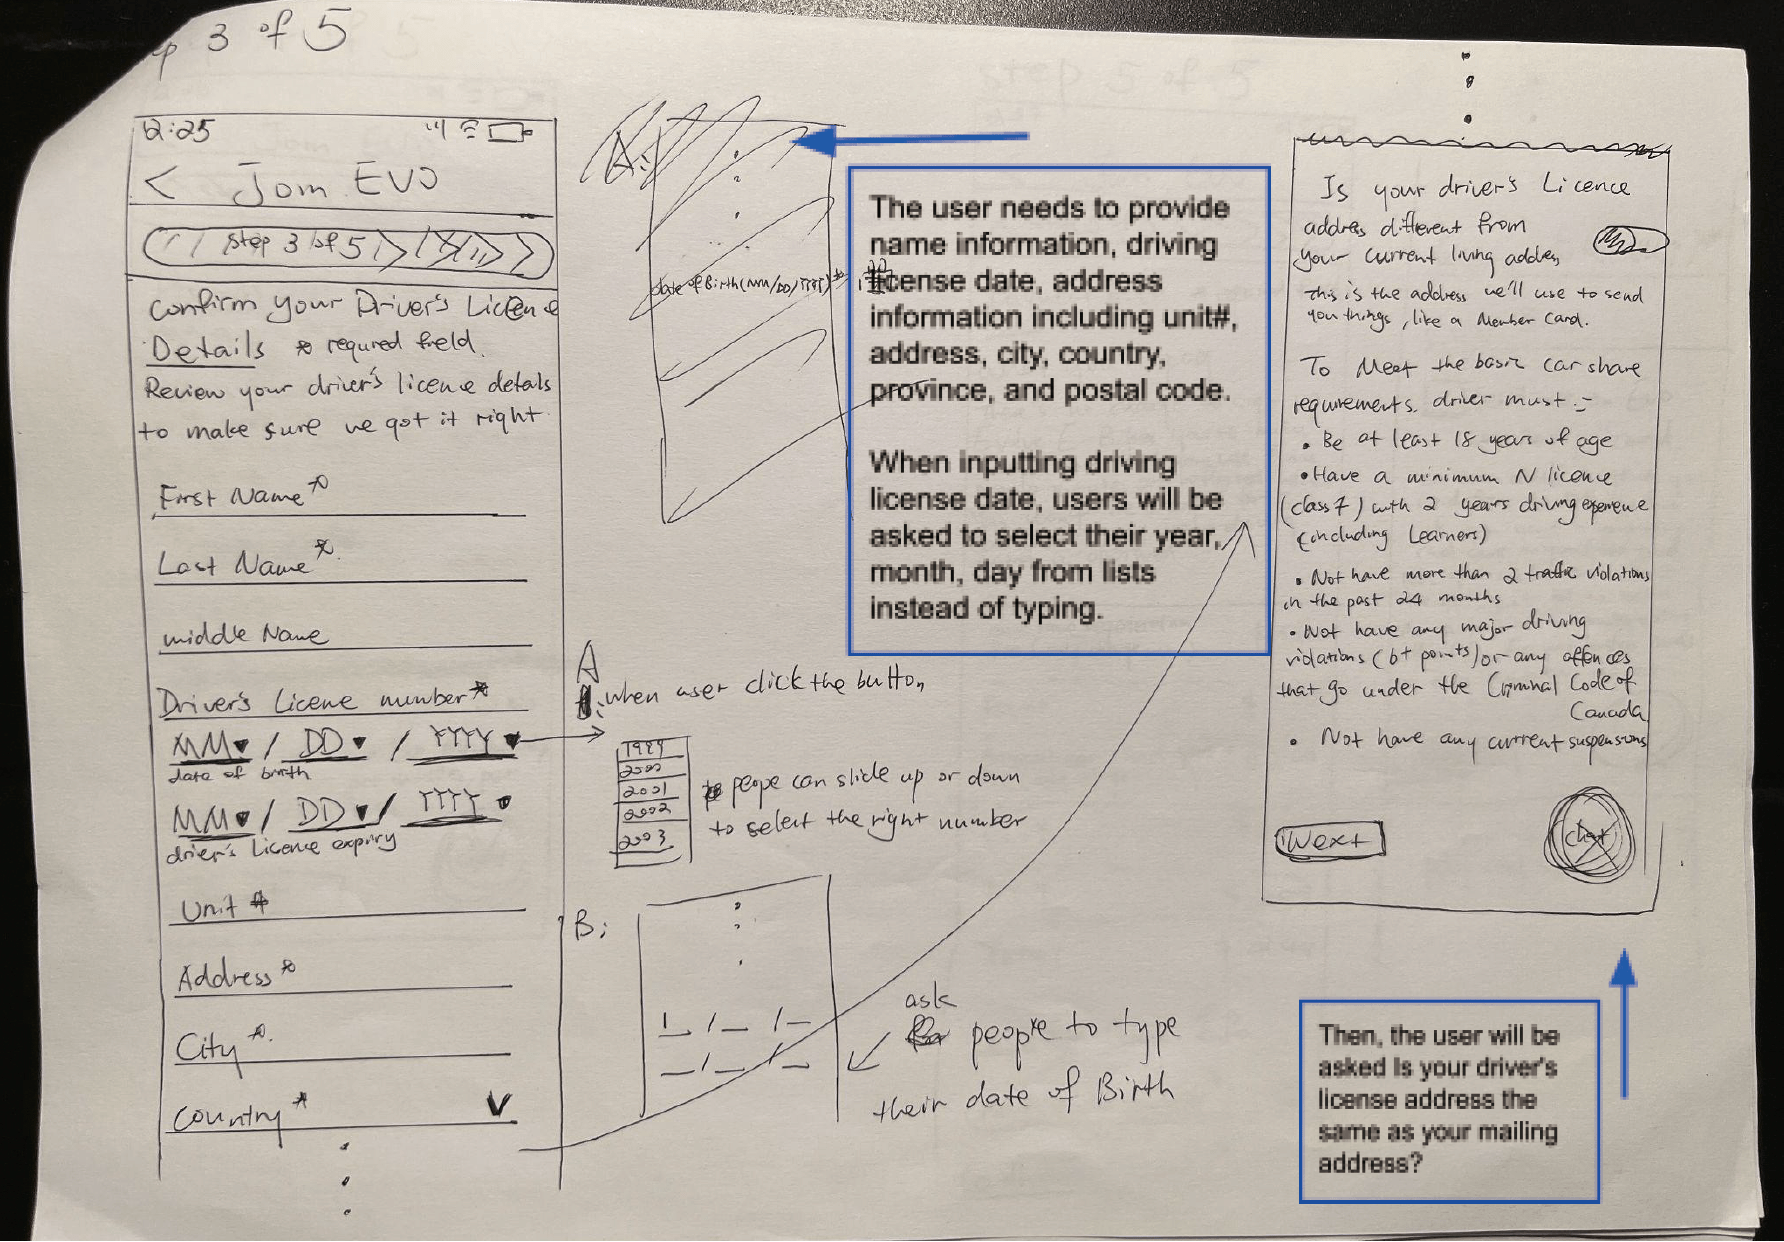 3 of 5
12:25
< Join EVO
step 3 of 5
Confirm your Driver's Licence
Details * required field.
Review your driver's licence details
to make sure we got it right
First Name*
Last Name*
middle Name
Driver's Licence number*
MM / DD / YYYY
date of birth
MM / DD / YYYY
driver's Licence expiry
Unit #
Address*
City*
Country*
A:
date of Birth (MM/DD/YYYY)
The user needs to provide
name information, driving
license date, address
information including unit#,
address, city, country,
province, and postal code.
When inputting driving
license date, users will be
asked to select their year,
month, day from lists
instead of typing.
A
when user click the button,
1999
2000
2001
2002
2003
people can slide up or down
to select the right number
B:
ask
people to type
their date of Birth
Is your driver's Licence
address different from
your current living address
this is the address we'll use to send
you things, like a Member Card.
To Meet the basic car share
requirements, driver must:-
• Be at least 18 years of age
• Have a minimum N licence
(class 7) with 2 years driving experience
(including Learners)
• Not have more than 2 traffic violations
in the past 24 months
• Not have any major driving
violations (6+ points) or any offences
that go under the Criminal Code of
Canada
• Not have any current suspensions
Next
chat
Then, the user will be
asked Is your driver's
license address the
same as your mailing
address?